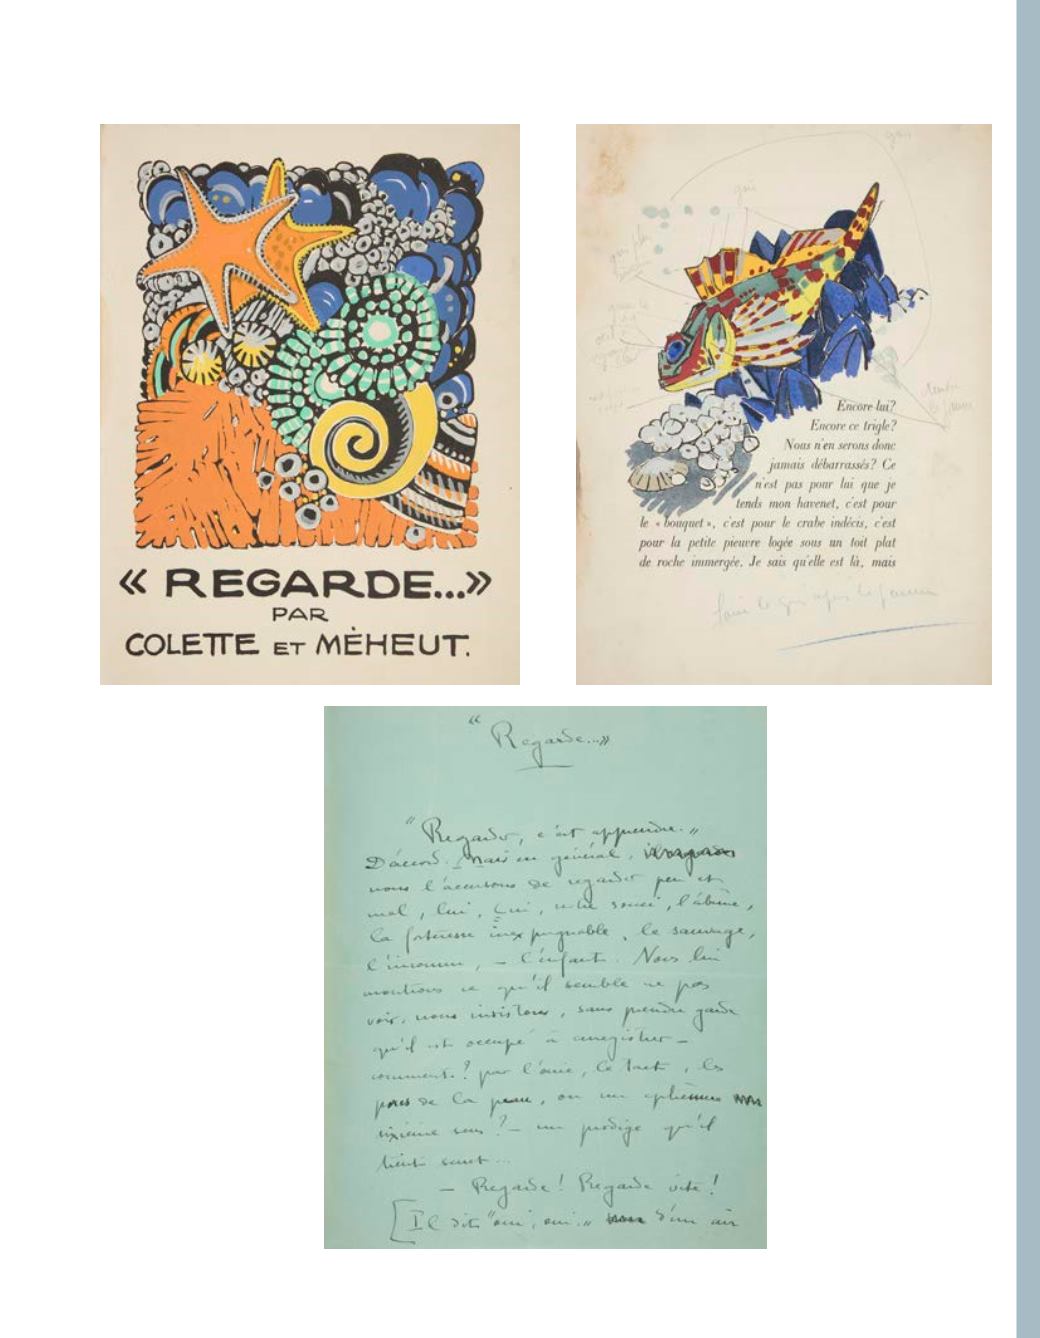 « REGARDE...»
PAR
COLETTE ET MÉHEUT.
gris
gris
Encore lui?
Encore ce trigle?
Nous n'en serons donc
jamais débarrassés? Ce
n'est pas pour lui que je
tends mon havenet, c'est pour
le « bouquet », c'est pour le crabe indécis, c'est
pour la petite pieuvre logée sous un toit plat
de roche immergée. Je sais qu'elle est là, mais
"Regarde...»
"Regarder, c'est apprendre."
D'accord. Mais en général,
nous l'accusons de regarder peu et
mal, lui, Lui, notre souci, l'abîme,
la forteresse inexpugnable, le sauvage,
l'inconnu, – l'enfant. Nous lui
montrons ce qu'il semble ne pas
voir, nous insistons, sans prendre garde
qu'il est occupé à enregistrer –
comment? par l'ouïe, le tact, les
pores de la peau, ou un
sixième sens? – un prodige qu'il
tient secret...
– Regarde! Regarde vite!
[Il dit "oui, oui" d'un air